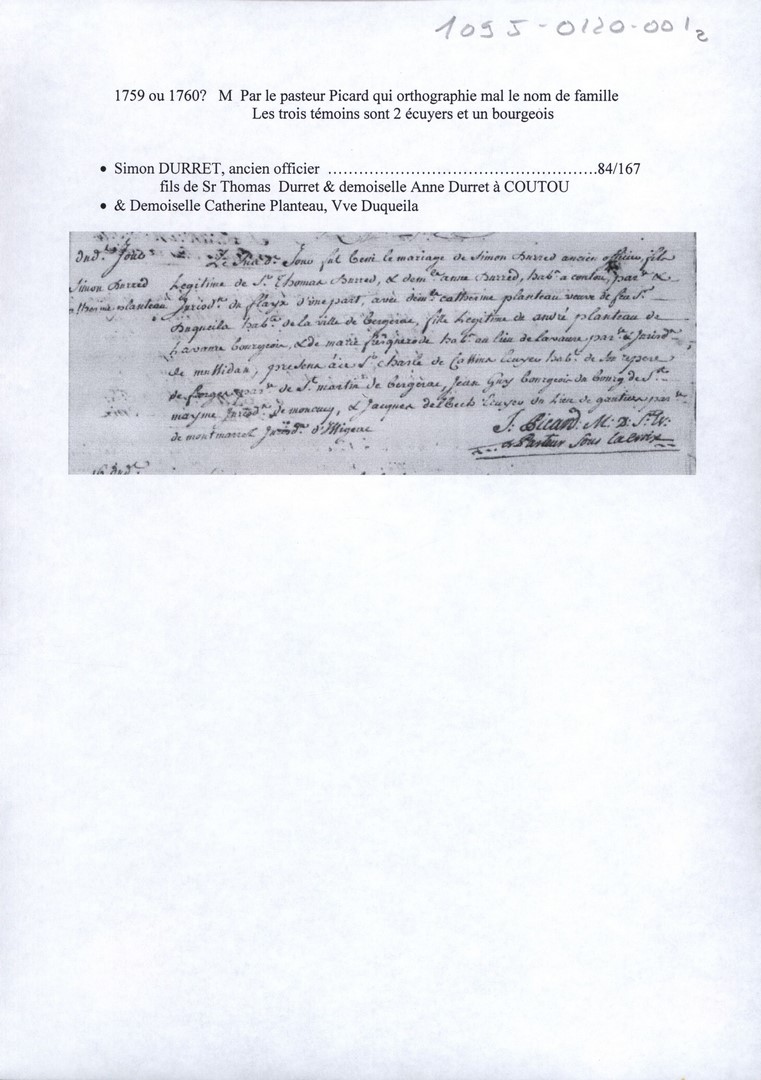 1095-0120-001 2
1759 ou 1760?   M  Par le pasteur Picard qui orthographie mal le nom de famille
Les trois témoins sont 2 écuyers et un bourgeois
• Simon DURRET, ancien officier ....................................................84/167
fils de Sr Thomas  Durret & demoiselle Anne Durret à COUTOU
• & Demoiselle Catherine Planteau, Vve Duqueila
Dud. Jour Le Sud. Jour fut beni le mariage de Simon Durred ancien officier, fils
Simon Durred Legitime de Sr. Thomas Durred, & demlle anne Durred, habts a coutou, parse &
therine planteau Juridon du flaya d'une part, avec demlle catherine planteau veuve de feu Sr.
Duqueila habte de la ville de bergerac, fille Legitime de andré planteau de
Lavaure bourgeois, & de marie habts au Lieu de Lavaure parse & Juridon
de mussidan, presens a ce Sr. Charle de Ecuyer habt de Son repere
de forges parse de St. martin de bergerac, Jean Guy bourgeois du bourg de Ste
mayme Juridon de moncuq, & Jacques Ecuyer du Lieu de parse
de montmarvel Juridon d'Issigeac
J. Picard. M. D. St. Ev.
& Pasteur Sous la croix
16 Dud.